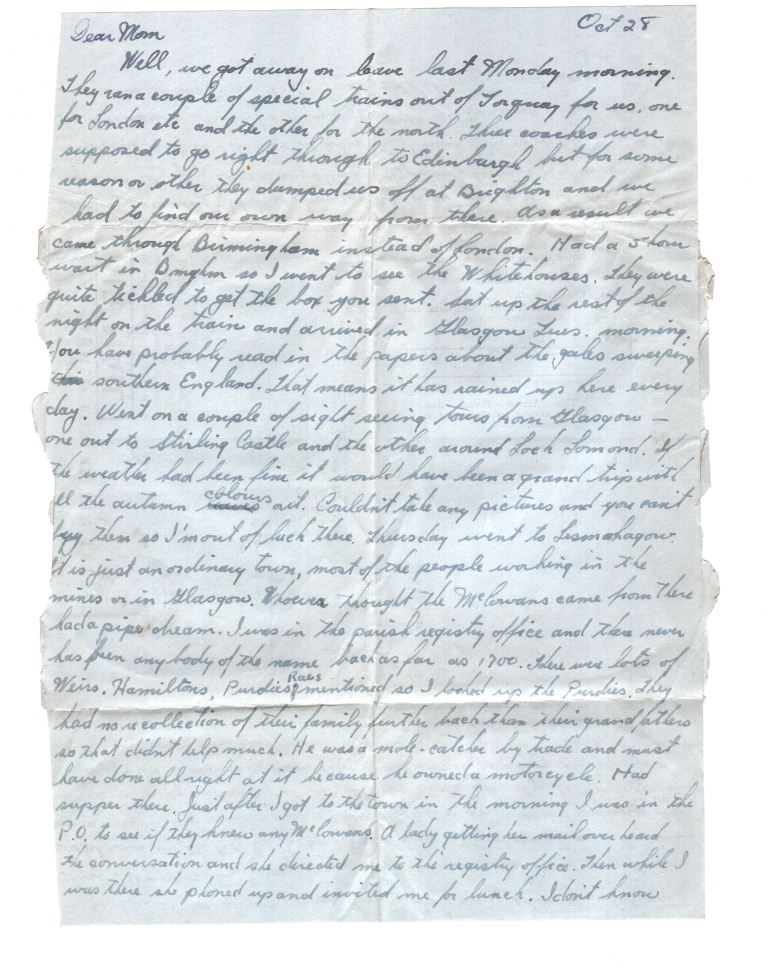 Dear Mom
Oct 28
Well, we got away on leave last Monday morning.
They ran a couple of special trains out of Torquay for us, one
for London etc and the other for the north. Three coaches were
supposed to go right through to Edinburgh but for some
reason or other they dumped us off at Brighton and we
had to find our own way from there. As a result we
came through Birmingham instead of London. Had a 5 hour
wait in Bmghm so I went to see the Whitehouses. They were
quite tickled to get the box you sent. Sat up the rest of the
night on the train and arrived in Glasgow Tues. morning.
You have probably read in the papers about the gales sweeping
southern England. That means it has rained up here every
day. Went on a couple of sight seeing tours from Glasgow —
one out to Stirling Castle and the other around Loch Lomond. If
the weather had been fine it would have been a grand trip with
all the autumn colours out. Couldn't take any pictures and you can't
buy them so I'm out of luck there. Thursday went to Lesmahagow.
It is just an ordinary town, most of the people working in the
mines or in Glasgow. Whoever thought the McCowans came from there
had a pipe dream. I was in the parish registry office and there never
has been anybody of the name back as far as 1700. There were lots of
Weirs, Hamiltons, Purdies, Raes mentioned so I looked up the Purdies. They
had no recollection of their family further back than their grandfathers
so that didn't help much. He was a mole-catcher by trade and must
have done all right at it because he owned a motorcycle. Had
supper there. Just after I got to the town in the morning I was in the
P.O. to see if they knew any McCowans. A lady getting her mail overheard
the conversation and she directed me to the registry office. Then while I
was there she phoned up and invited me for lunch. I don't know